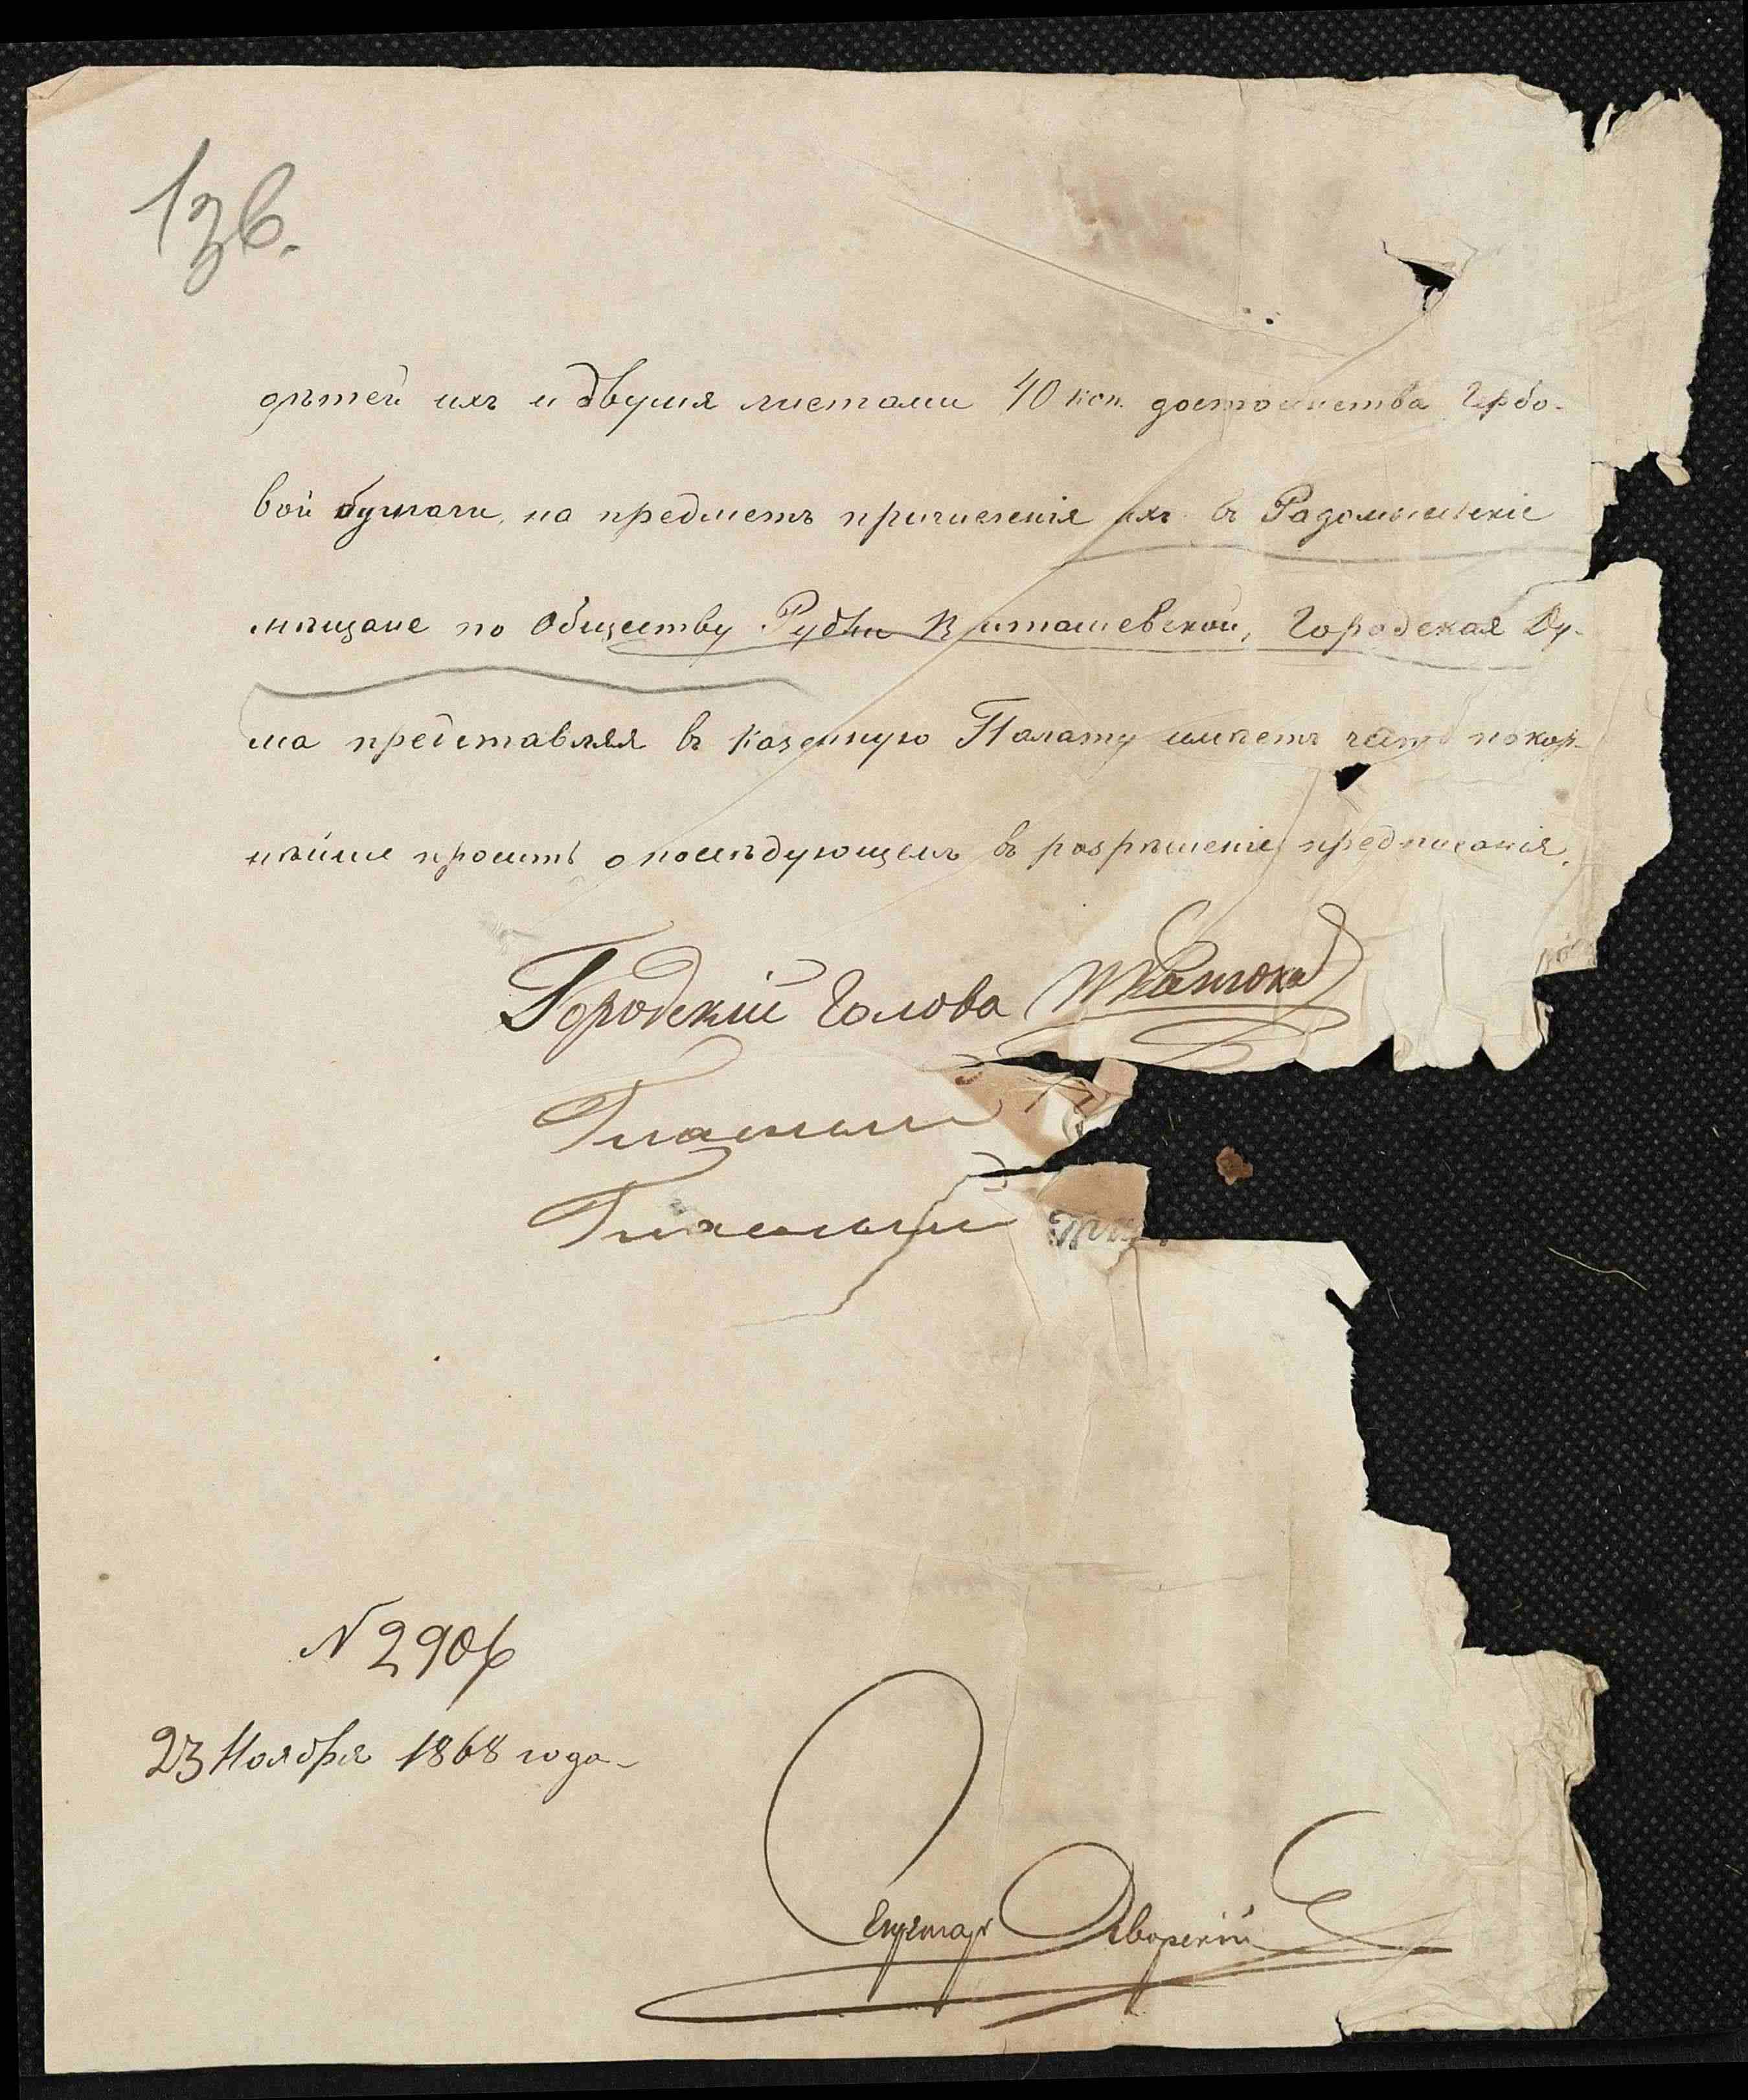 13в.
дѣтей ихъ и двумя листами 40 коп. достоинства гербо-
вой бумаги, на предметъ причисленія ихъ въ Радомысльскіе
мѣщане по Обществу Рудни Виташевской, Городская Ду-
ма представляя въ Казенную Палату имѣетъ честь покор-
нѣйше просить о послѣдующемъ въ разрѣшеніе предписанія.
Городскій Голова
Гласный
Гласный
23 Ноября 1868 года
Секретарь Яворскій